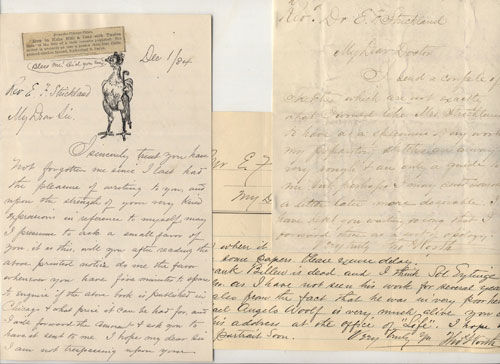 Dec 1/84
Rev E. F. Strickland
My Dear Sir.
I sincerely trust you have
not forgotten me since I last had
the pleasure of writing to you, and
upon the strength of your very kind
expression in reference to myself may
I presume to ask a small favor of
you, it is this, will you after reading the
above printed notice do me the favor
whenever you have five minutes to spare
to enquire if the above book is published in
Chicago & what price it can be had for and
I will forward the amount & ask you to
have it sent to me I hope my dear Sir
I am not trespassing upon your
Rev Dr E. F. Strickland
My Dear Doctor
I send a couple of
sketches which are not exactly
what I would like Mrs Strickland
to have as a specimen of my work
very rough & an only a guide
me but perhaps I may send some
a little later more desirable. I
have kept you waiting so long that I
very truly Tho Worth
E. F.
My D
when it
some papers Please excuse delay.
Frank Bellew is dead and I think Sol Eytinge
as I have not seen his work for several years
also from the fact that he was in very poor health
Angelo Woolf is very much alive you
his address at the office of "Life". I hope
portrait soon.
Very truly Yrs
Tho Worth